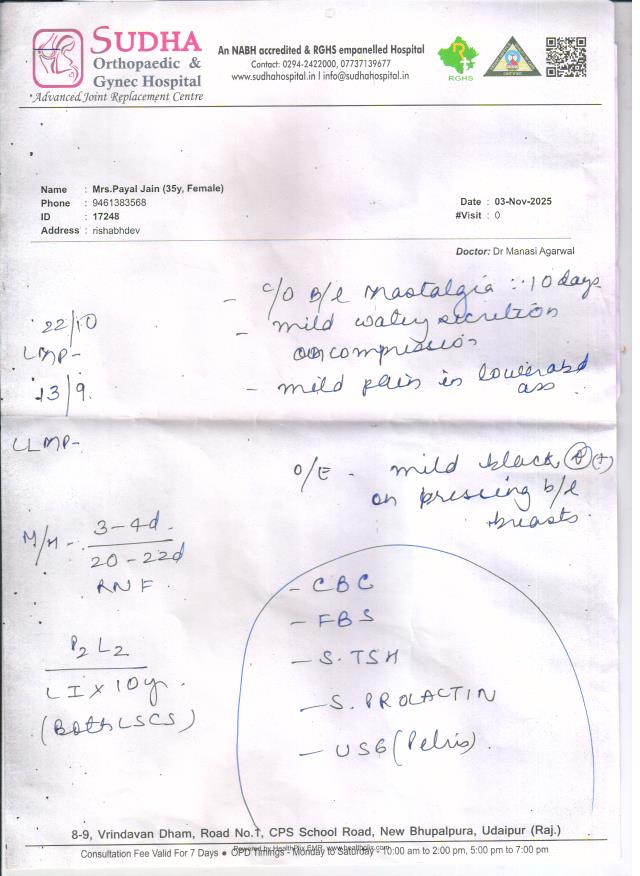 SUDHA
Orthopaedic &
Gynec Hospital
Advanced Joint Replacement Centre
An NABH accredited & RGHS empanelled Hospital
Contact: 0294-2422000, 07737139677
www.sudhahospital.in I info@sudhahospital.in
RGHS
Name : Mrs.Payal Jain (35y, Female)
Phone : 9461383568
ID : 17248
Address : rishabhdev
Date : 03-Nov-2025
#Visit : 0
Doctor: Dr Manasi Agarwal
- c/o B/L Mastalgia :: 10 days
- mild watery secretion
on compression
- mild pain in lower abd
22/10
LMP-
13/9.
LLMP-
O/E - mild black (+)
on pressing b/l
breasts.
M/H - 3-4d.
20-22d
RNF.
P2 L2
LI x 10yr.
(Both LSCS)
- CBC
- FBS
- S.TSH
- S. PROLACTIN
- USG (Pelvis)
8-9, Vrindavan Dham, Road No.1, CPS School Road, New Bhupalpura, Udaipur (Raj.)
Powered by HealthPlix EMR. www.healthplix.com
Consultation Fee Valid For 7 Days ● OPD Timings - Monday to Saturday - 10:00 am to 2:00 pm, 5:00 pm to 7:00 pm